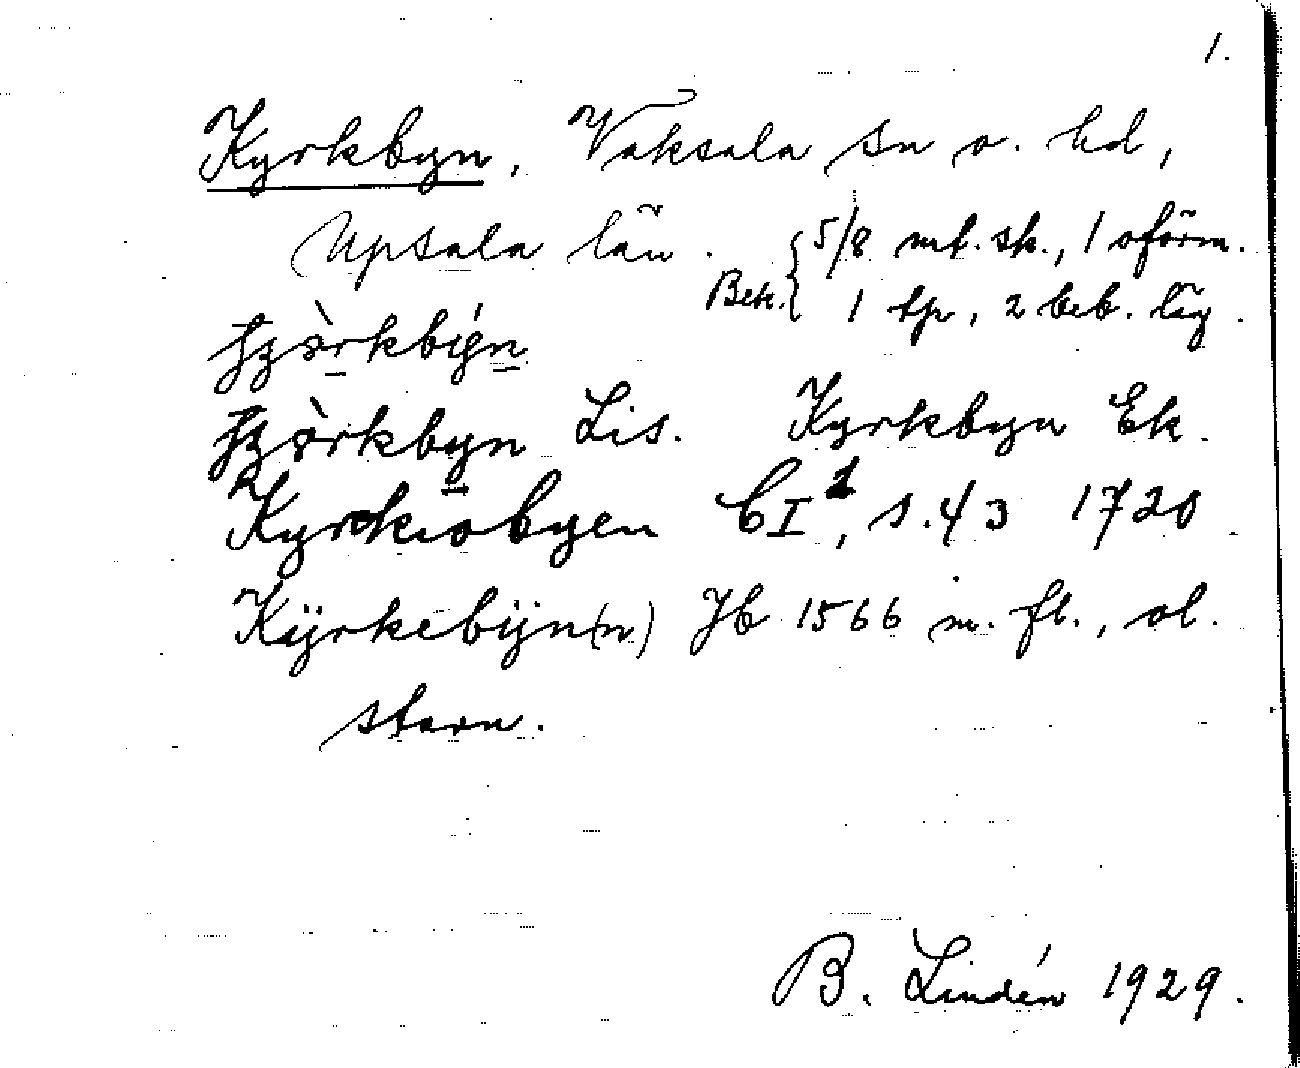 1.
Kyrkbyn, Vaksala sn o. hd,
Upsala län.
Bek. { 5/8 mt. sk., 1 oförm.
1 tp, 2 beb. läg.
Kyrkbyn Ek.
Lis.
Kyrkiobyen CI², s. 43 1720
Kÿrkebÿn(n) Jb 1566 m. fl., ol.
starn.
B. Lindén 1929.